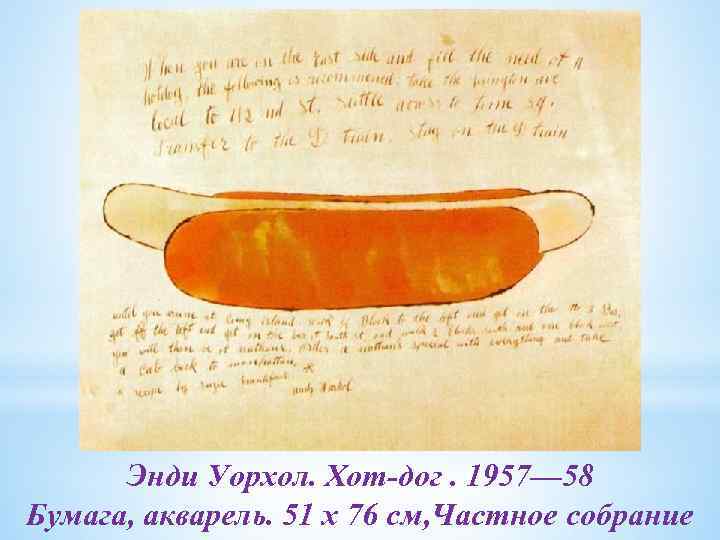 When you are on the East side and fill the need of a
hotdog, the following is recommended: take the Lexington ave
local to 42 nd St. Suttle across to time sq.
Transfer to the D train. Stay on the D train
until you arrive at Long Island. walk Block to the left and get on the
get off the left and get on the bus it south it, and walk 2 blocks south and one block west
you will then be at nathans. Order a nathans special with everything and take
a cab back to manhattan.
a recipe by suzie frankfurt
andy Warhol
Энди Уорхол. Хот-дог . 1957—58
Бумага, акварель. 51 x 76 см, Частное собрание